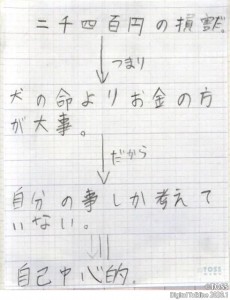 二千四百円の損害。
つまり
犬の命よりお金の方
が大事。
だから
自分の事しか考えて
いない。
自己中心的。
TOSS
©TOSS